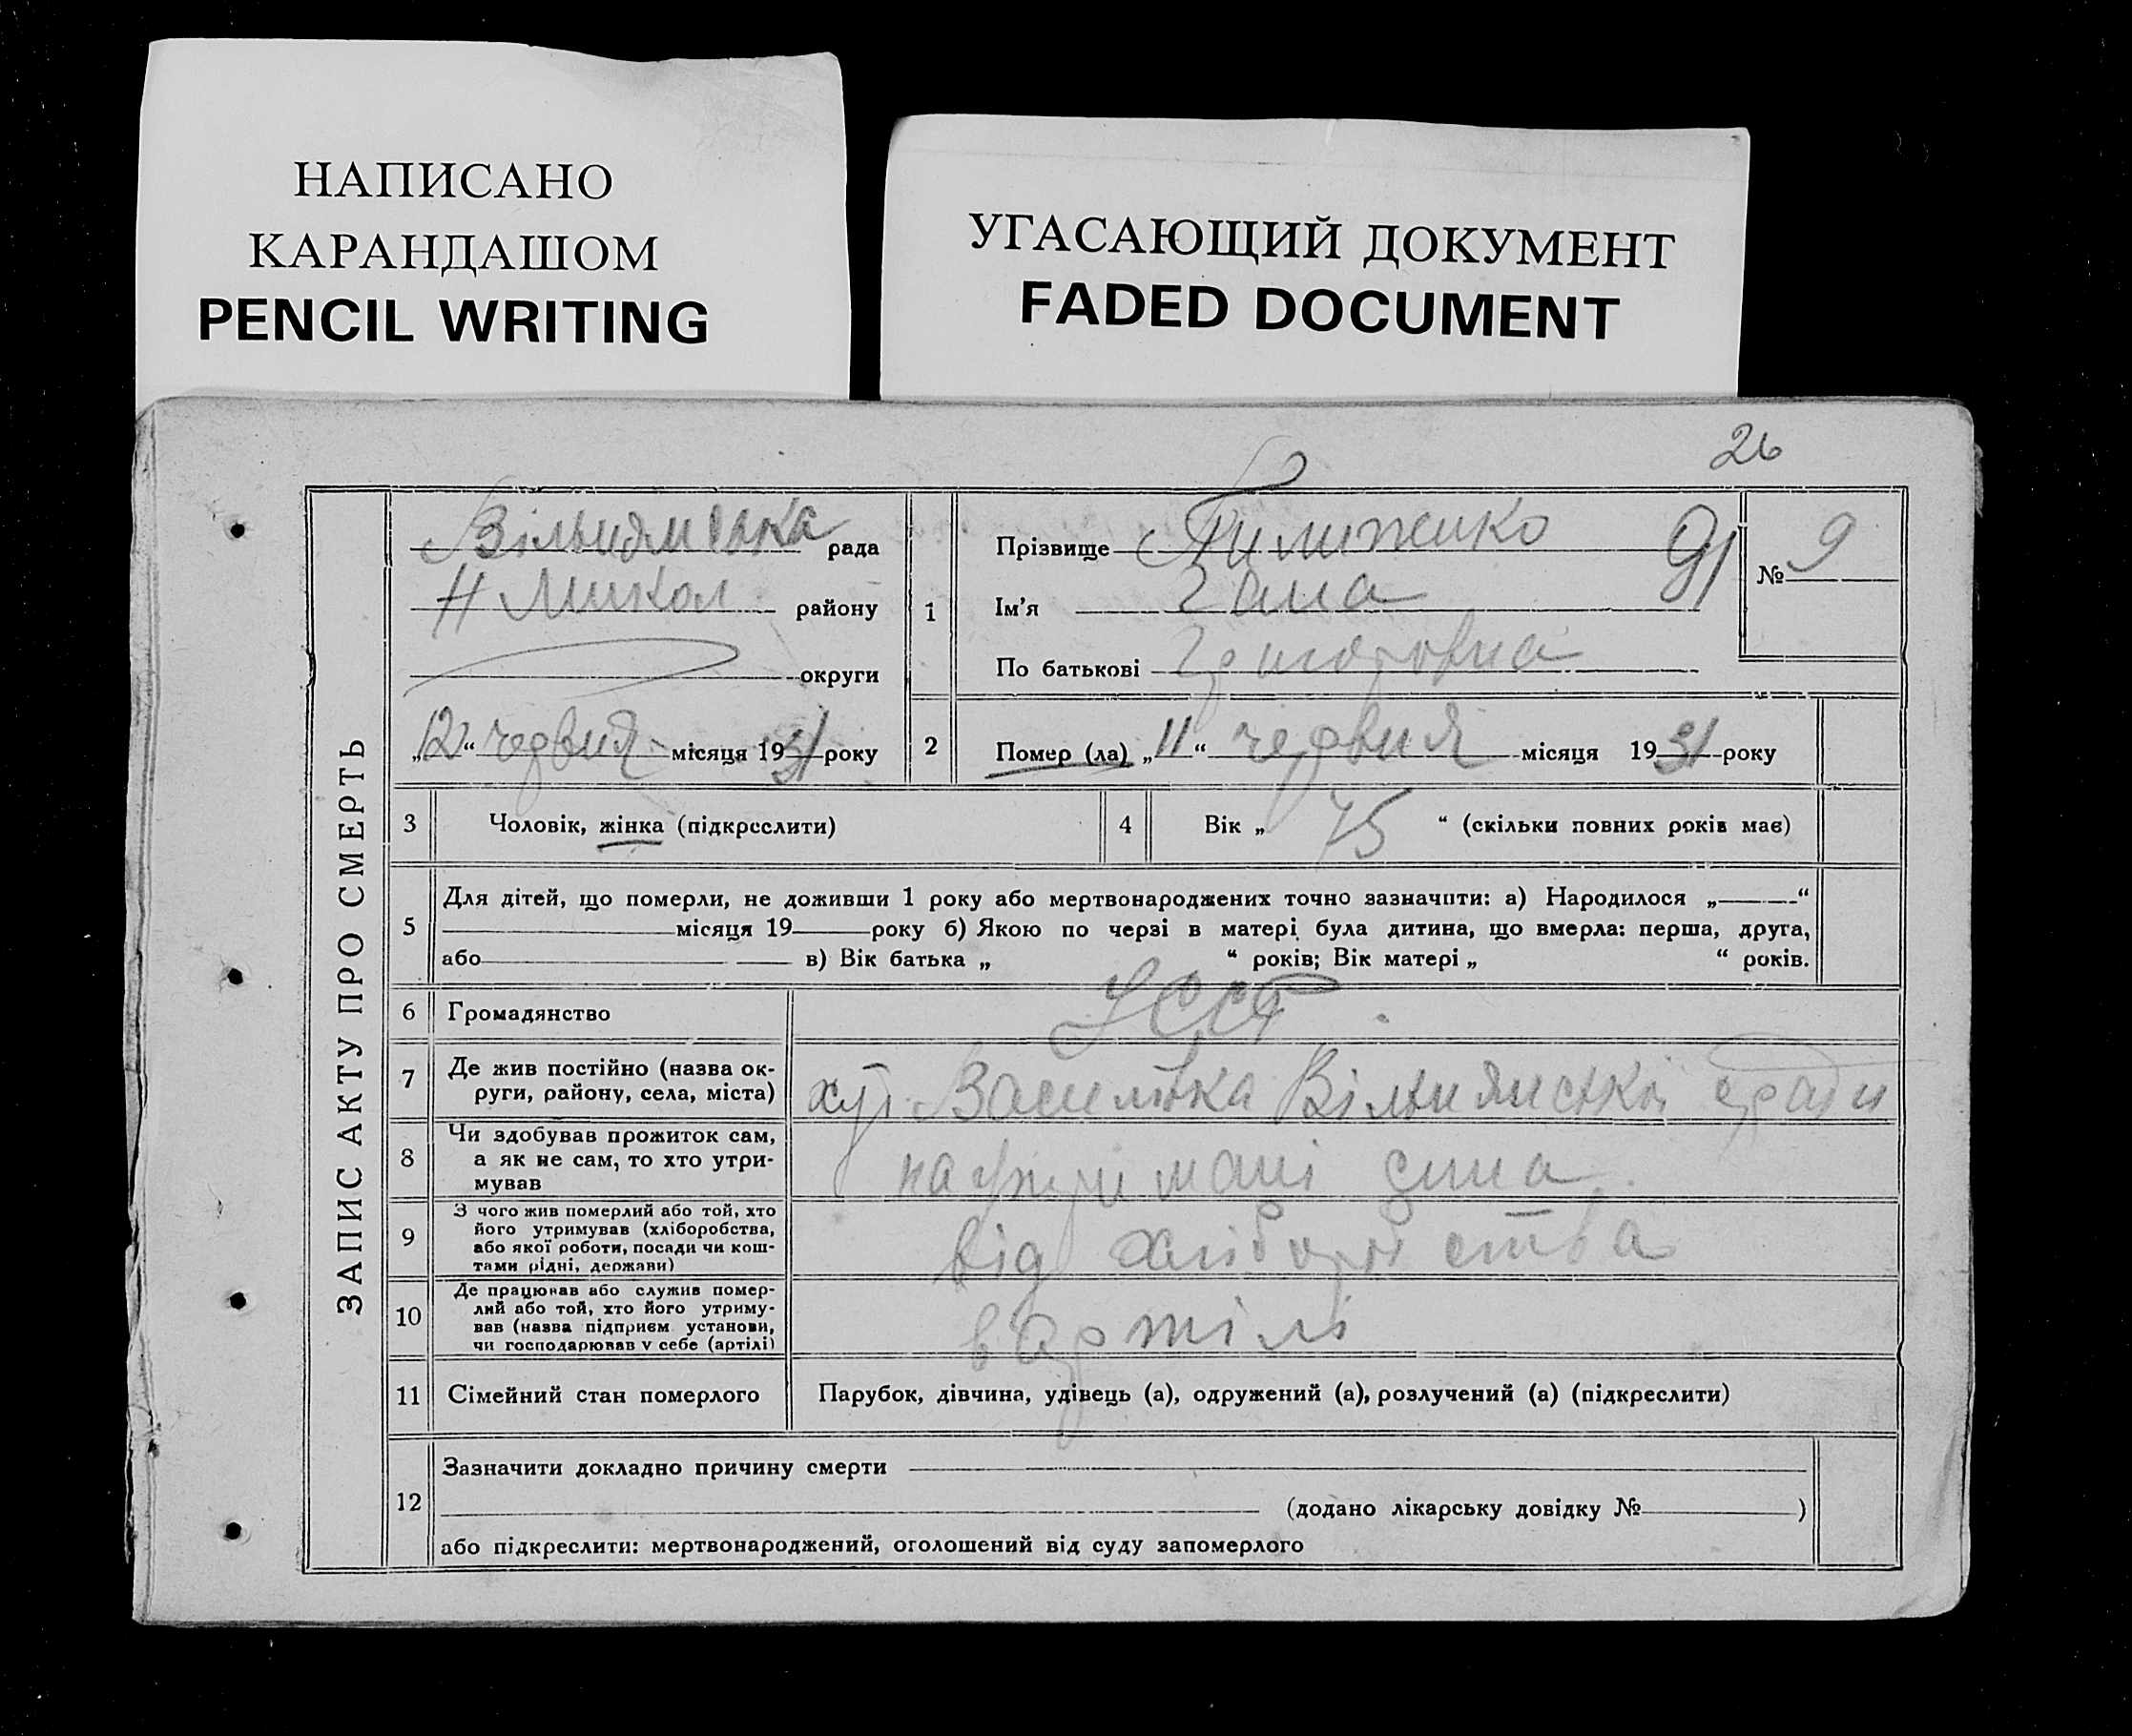 НАПИСАНО
КАРАНДАШОМ
PENCIL WRITING
УГАСАЮЩИЙ ДОКУМЕНТ
FADED DOCUMENT
26
ЗАПИС АКТУ ПРО СМЕРТЬ
рада
Н Микол району
округи
„12“ червня місяця 1931 року
1
Прізвище
91
Ім’я Гана
По батькові Григоровна
№ 9
2
Помер (ла) „11“ червня місяця 1931 року
3 Чоловік, жінка (підкреслити)
4 Вік „ 75 “ (скільки повних років має)
5
Для дітей, що померли, не доживши 1 року або мертвонароджених точно зазначити: а) Народилося „ “
місяця 19 року б) Якою по черзі в матері була дитина, що вмерла: перша, друга,
або в) Вік батька „ “ років; Вік матері „ “ років.
6 Громадянство УССР
7 Де жив постійно (назва ок-
руги, району, села, міста)
хут Василівка ради
8 Чи здобував прожиток сам,
а як не сам, то хто утри-
мував
на утримані сина
9 З чого жив померлий або той, хто
його утримував (хліборобства,
або якої роботи, посади чи кош-
тами рідні, держави)
від хліборобства
10 Де працював або служив помер-
лий або той, хто його утриму-
вав (назва підприєм. установи,
чи господарював у себе (артілі)
в артілі
11 Сімейний стан померлого
Парубок, дівчина, удівець (а), одружений (а), розлучений (а) (підкреслити)
12
Зазначити докладно причину смерти
(додано лікарську довідку № )
або підкреслити: мертвонароджений, оголошений від суду запомерлого